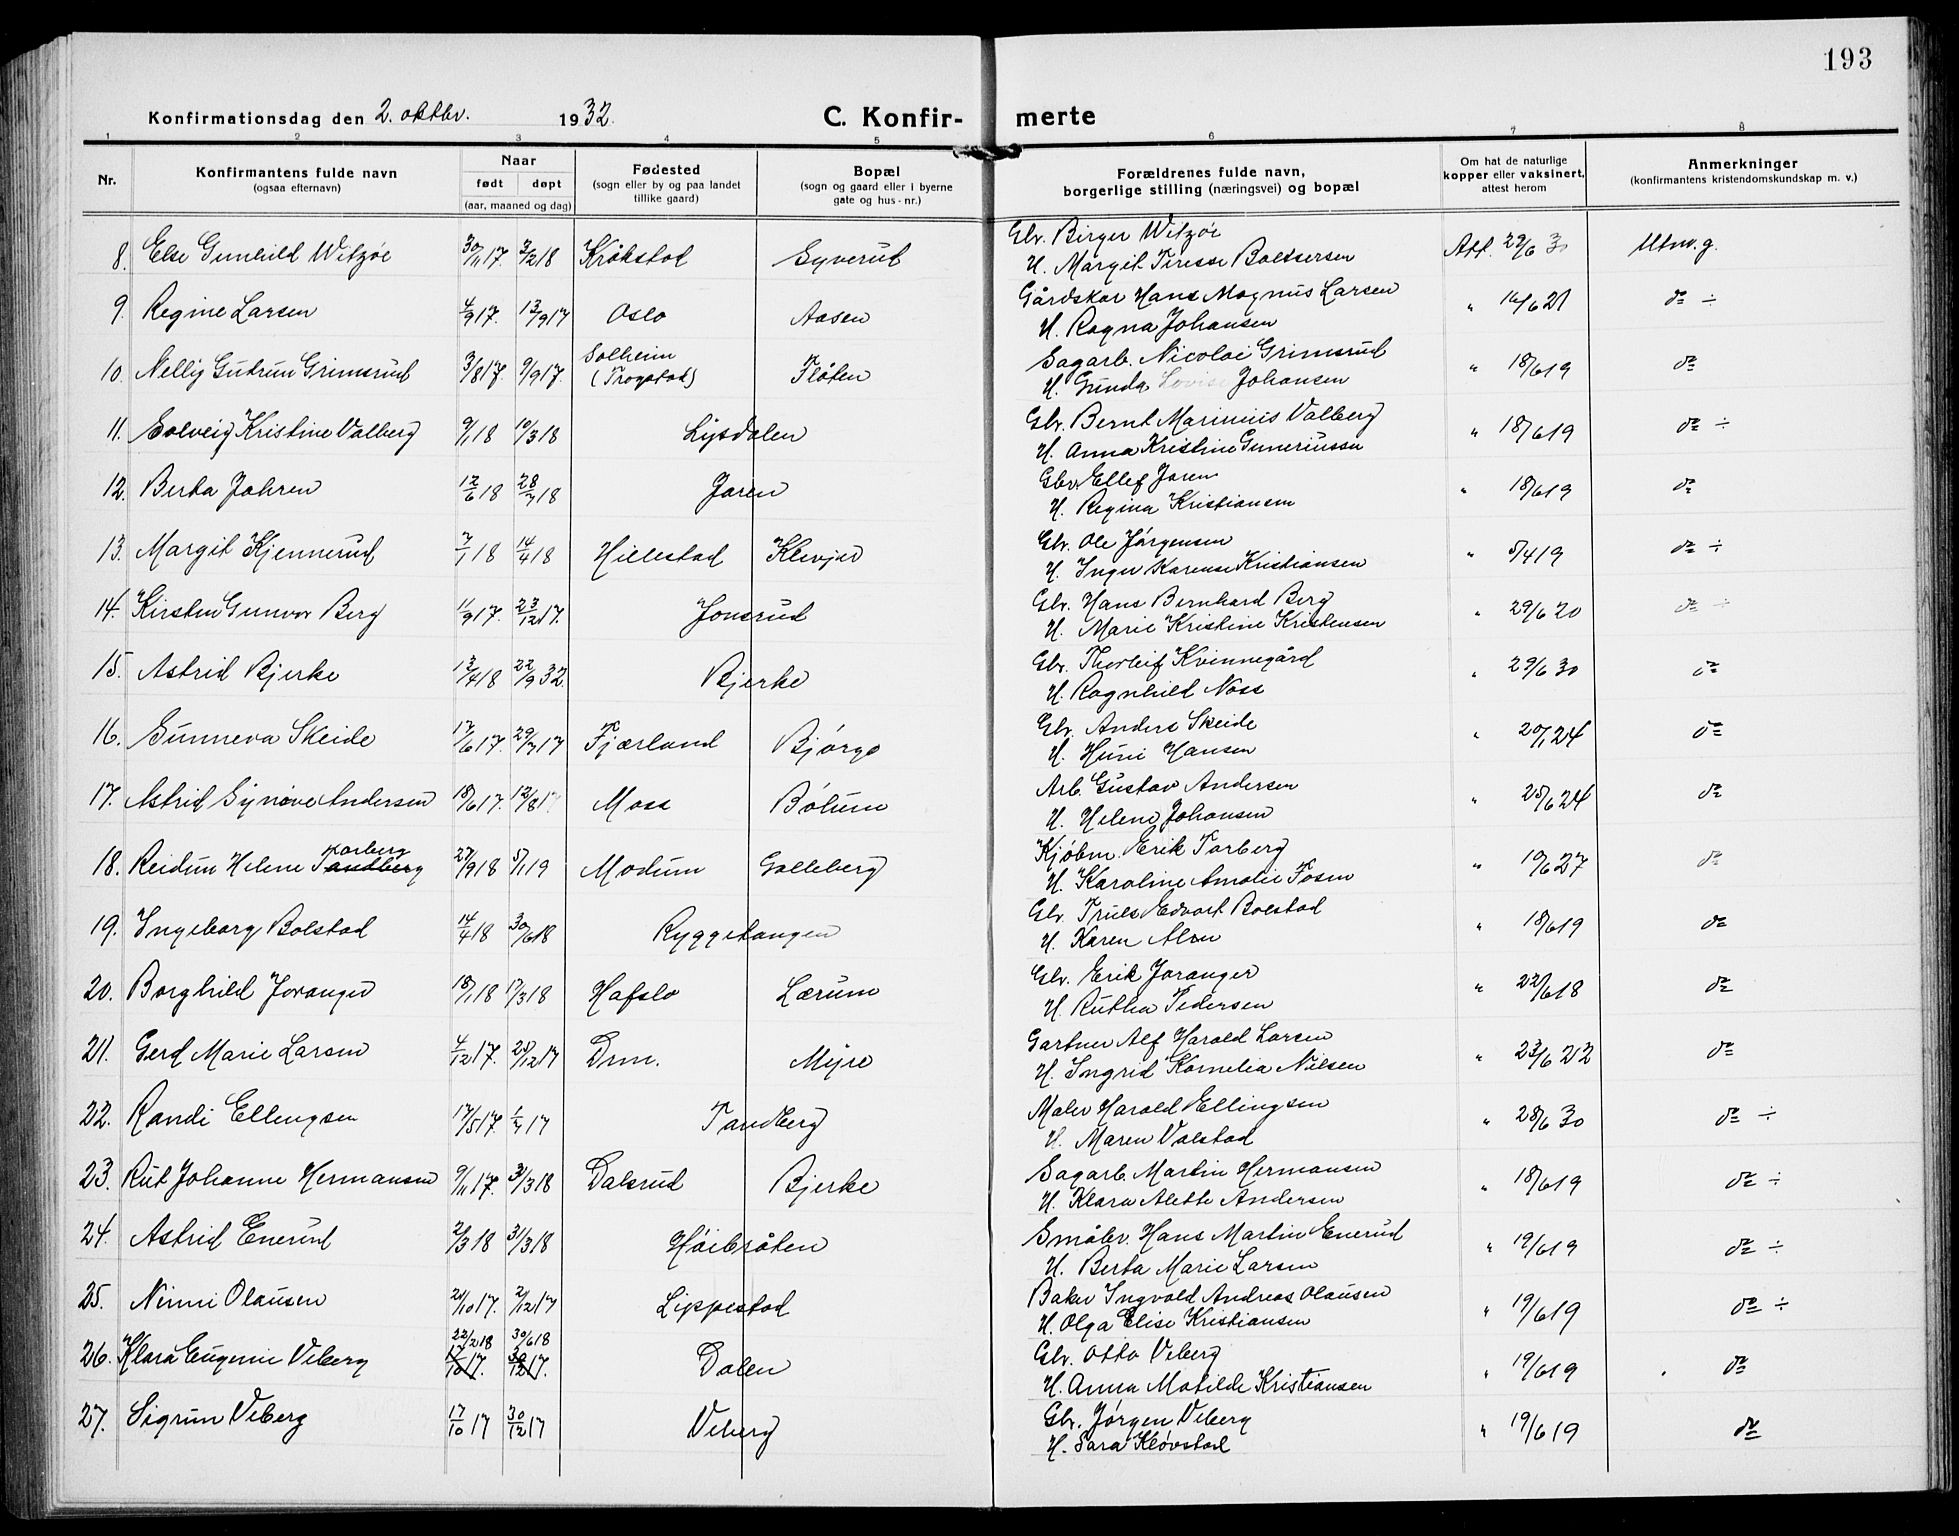 193
Konfirmationsdag den 2. oktbr. 1932. C. Konfir- merte
1 2 3 4 5 6 7 8
Nr. Konfirmantens fulde navn (ogsaa efternavn) Naar født døpt (aar, maaned og dag) Fødested (sogn eller by og paa landet tillike gaard) Bopæl (sogn og gaard eller i byerne gate og hus-nr.) Forældrenes fulde navn, borgerlige stilling (næringsvei) og bopæl Om hat de naturlige kopper eller vaksinert, attest herom Anmerkninger (konfirmantens kristendomskundskap m. v.)
8. Else Gunhild Witzøe 30/11 17. 3/2 18 Kråkstad Syverud Gbr. Birger Witzøe Att. 29/6 30 Utm. g.
H. Margit Terese Boltsersen
9. Regine Larsen 4/9 17. 13/9 17 Oslo Aasen Gårdskar Hans Magnus Larsen " 16/6 21 do ÷
H. Ragna Johansen
10. Nellij Gudrun Grimsrud 3/8 17. 9/9 17. Solheim (Trøgstad) Fløten Sagarb. Nicolai Grimsrud " 18/6 19 do
H. Gunda Lovise Johansen
11. Solveig Kristine Valberg 9/1 18 10/3 18 Lysdalen Gbr. Bernt Marinius Valberg " 18/6 19 do ÷
H. Anna Kristine Guneriussen
12. Berta Jahren 12/6 18 28/7 18 Jaren Gbr. Ellef Jaren " 18/6 19 do
H. Regina Kristiansen
13. Margit Kjennerud 7/1 18 14/4 18 Hillestad Klevjer Gbr. Ole Jørgensen " 5/4 19 do ÷
H. Inger Karense Kristiansen
14. Kirsten Gunvor Berg 11/9 17. 23/12 17. Jonsrud Gbr. Hans Bernhard Berg " 29/6 20 do ÷
H. Marie Kristine Kristensen
15. Astrid Bjerke 13/4 18 22/9 32. Bjerke Gbr. Thorleif Kvinnegård " 29/6 30 do
H. Ragnhild Noss
16. Sunneva Skeide 17/6 17. 29/7 17 Fjærland Bjørge Gbr. Anders Skeide " 20/1 24 do
H. Huni Hansen
17. Astrid Synøve Andersen 18/6 17. 12/8 17 Moss Bølum Arb. Gustav Andersen " 25/6 24 do
H. Helene Johansen
18. Reidun Helene Tandberg Torberg 27/9 18 5/1 19 Modum Golleberg Kjøbm. Erik Torberg " 10/6 27 do
H. Karoline Amalie Fosen
19. Ingeborg Bolstad 14/4 18 30/6 18 Ryggetangen Gbr. Truls Edvart Bolstad " 18/6 19 do
H. Karen Alsen
20. Borghild Joranger 18/1 18 17/3 18 Hafslo Lærum Gbr. Erik Joranger " 22/6 18 do
H. Ruthea Pedersen
21. Gerd Marie Larsen 4/12 17. 25/12 17 Drm. Myre Gartner Alf Harald Larsen " 23/6 22 do
H. Ingrid Kornelia Nilsen
22. Randi Ellengsen 17/5 17. 1/7 17 Tandberg Maler Harald Ellingsen " 28/6 30 do ÷
H. Maren Valstad
23. Rut Johanne Hermansen 9/11 17. 31/3 18 Dalsrud Bjerke Sagarb. Martin Hermansen " 18/6 19 do ÷
H. Klara Alette Andersen
24. Astrid Enerud 2/3 18 31/3 18 Høibråten Småbr. Hans Martin Enerud " 19/6 19 do ÷
H. Berta Marie Larsen
25. Ninni Olausen 21/10 17. 2/12 17 Lippestad Baker Ingvald Andreas Olausen " 19/6 19 do ÷
H. Olga Elise Kristiansen
22/2 18 30/6 18
26. Klara Eugenie Viberg 17/10 17. 30/12 17. Dalen Gbr. Otto Viberg " 19/6 19 do
H. Anna Matilde Kristiansen
27. Sigrun Viberg 17/10 17 30/12 17 Viberg Gbr. Jørgen Viberg " 19/6 19 do
H. Sara Kløvstad